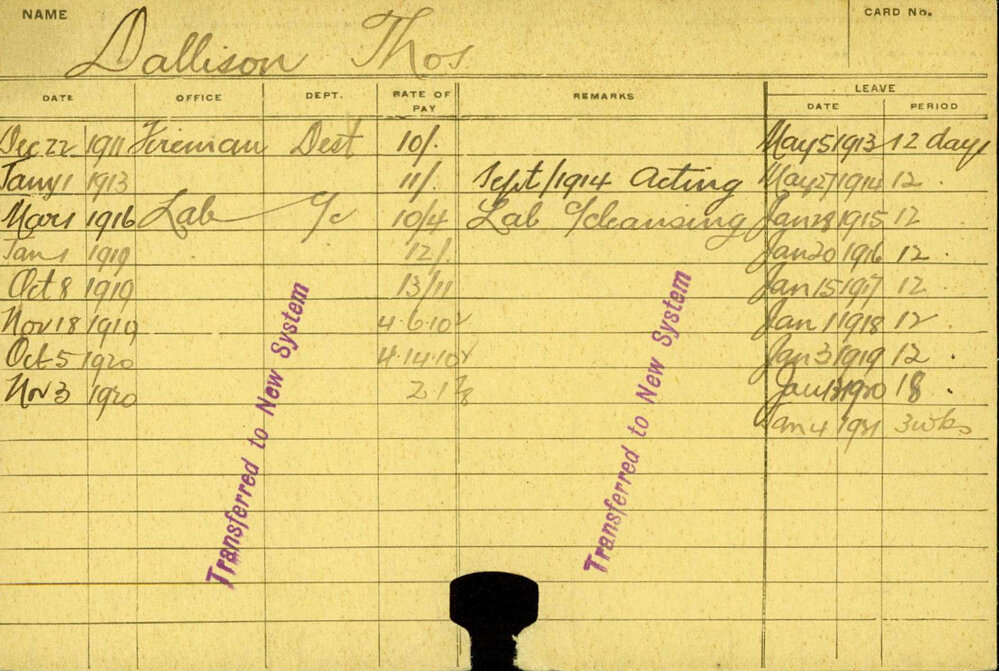 NAME
CARD No.
Dallison Thos
DATE OFFICE DEPT. RATE OF PAY REMARKS LEAVE
DATE PERIOD
Dec 22 1911 Fireman Dest 10/. May 5 1913 12 days
Jany 1 1913 11/. Sept/1914 Acting May 27 1914 12 .
Mar 1 1916 Lab 10/4 Lab Cleansing Jan 28 1915 12
Jan 1 1919 12/. Jan 20 1916 12 .
Oct 8 1919 13/11 Jan 15 1917 12
Nov 18 1919 4.6.10½ Jan 1 1918 12
Oct 5 1920 4.14.10½ Jan 3 1919 12 .
Nov 3 1920 Jan 1920 18 .
Jan 4 1921 3 wks
Transferred to New System
Transferred to New System